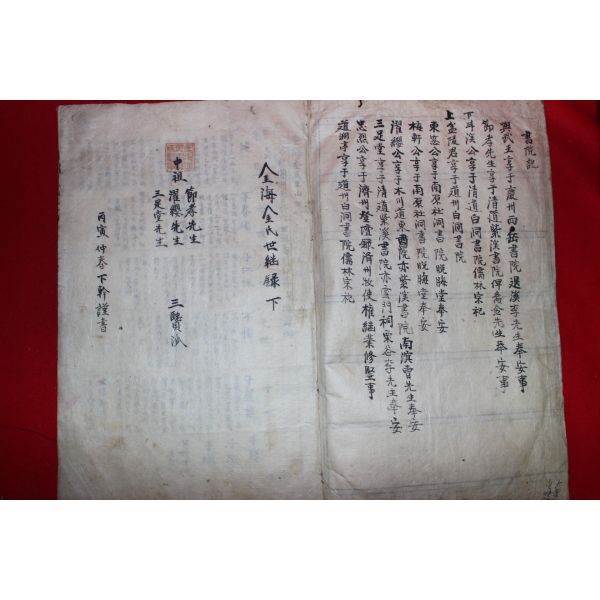 書院記
興武王享于慶州西岳書院退溪李先生奉安事
節孝先生享于清道紫溪書院俾喬侖先生奉安事
下斗溪公享于清道白洞書院儒林宗祀
上盆陵君享于道州白洞書院
東窓公享于南原社洞書院晩晦堂奉安
梅軒公享于南原社洞書院晩晦堂奉安
濯纓公享于木川道東書院亦紫溪書院南濱曹先生奉安
三足堂享于清道紫溪書院亦雲門祠栗谷李先生奉安
忠烈公享于濟州登陰錄濟州牧使權継業修堅事
道淵亭享于道州白洞書院儒林宗祀
金海金氏世継録 下
節孝先生
中祖 濯纓先生
三足堂先生
三賢派
丙寅仲春下幹謹書